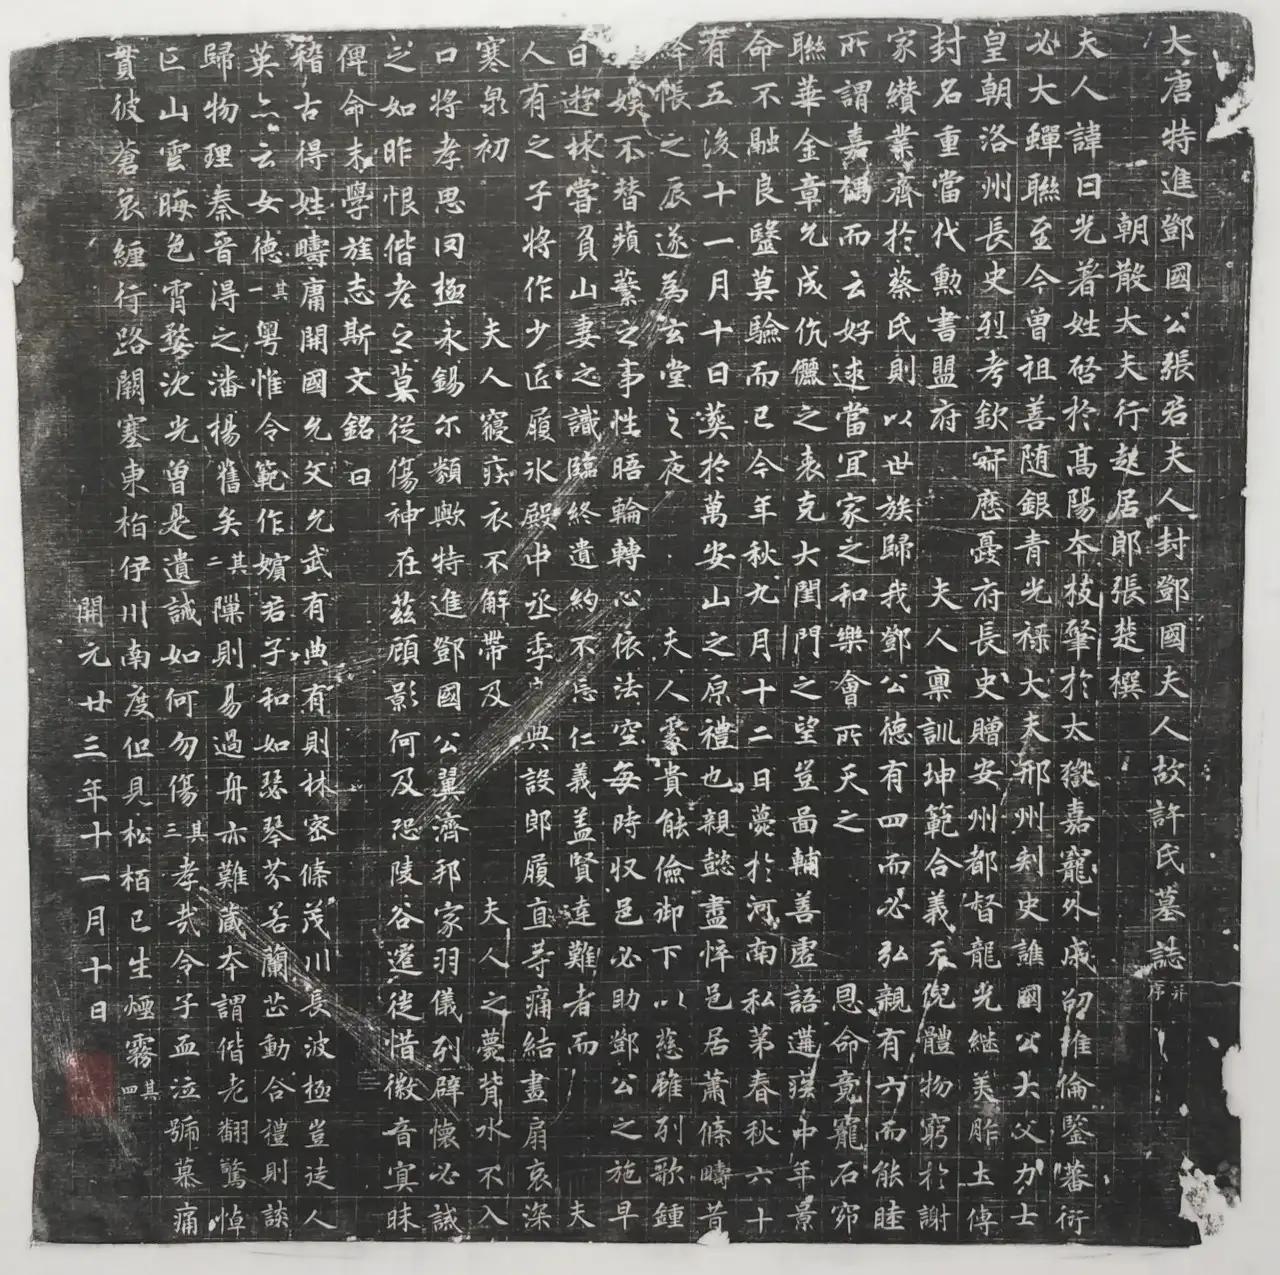 大唐特進鄧國公張君夫人封鄧國夫人故許氏墓誌并序
朝散大夫行起居郎張楚撰
夫人諱日光著姓啓於高陽本枝肇於太嶽嘉寵外戚碩淮倫鑒蕃衍
必大蟬聯至今曾祖善隨銀青光禄大夫邢州刾史譙國公大父力士
皇朝洛州長史烈考欽寂歷夔府長史贈安州都督龍光継美胙土傳
封名重當代勲書盟府 夫人稟訓坤範合義天倪體物窮於謝
家纘業齊於蔡氏則以世族歸我鄧公德有四而必弘親有六而能睦
所謂嘉耦而云好逑當宜家之和樂會所天之 恩命竟寵石窌
聯華金章允成伉儷之表克大閨門之望豈啚輔善虛語遘瘼中年景
命不融良毉莫驗而已今年秋九月十二日薨於河南私第春秋六十
有五後十一月十日葬於萬安山之原禮也親懿盡悴邑居蕭條疇昔
絳帳之辰遂為玄堂之夜 夫人處貴能儉御下以慈雖列歌鍾
娛不替蘋蘩之事性晤輪轉心依法空每時収邑必助鄧公之施早
日遊林嘗負山妻之識臨終遺約不忘仁義盖賢達難者而 夫
人有之子將作少匠履冰殿中丞季 典設郎履直等痛結畫扇哀深
寒泉初 夫人寢疾衣不解帶及 夫人之薨背水不入
口將孝思罔極永錫尔類歟特進鄧國公翼濟邦家羽儀列辟懷必誠
之如昨恨偕老之莫從傷神在茲顧影何及恐陵谷遷徙惜徽音寘昧
俾命末學旌志斯文銘曰
稽古得姓疇庸開國允文允武有典有則林密條茂川長波極豈徒人
英亦云女德其一粵惟令範作嬪君子和如瑟琴芬若蘭芷動合禮則談
歸物理秦晉淂之潘楊舊矣其二隟則易過舟亦難藏本謂偕老翻驚悼
亡山雲晦色霄婺沈光曽是遺誡如何勿傷其三孝㢤令子血泣號慕痛
貫彼蒼哀纏行路闕塞東栢伊川南度但見松栢已生煙霧其四
開元廿三年十一月十日